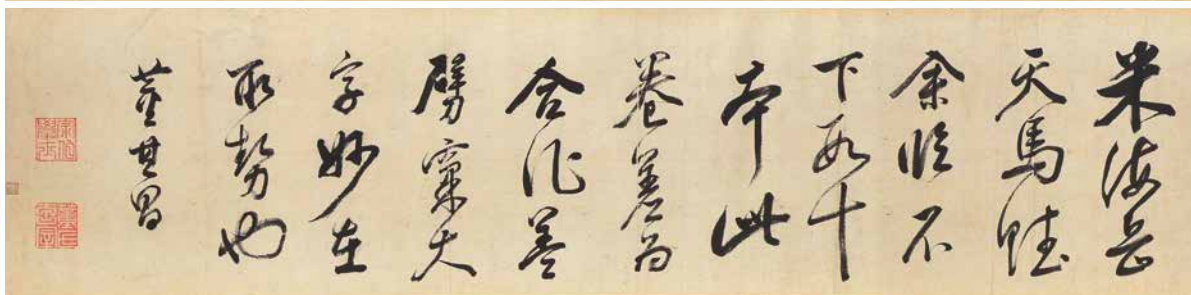 米海岳
天馬賦
余臨不
下數十
本此
卷差為
合作蓋
擘窠大
字妙在
取勢也
董其昌